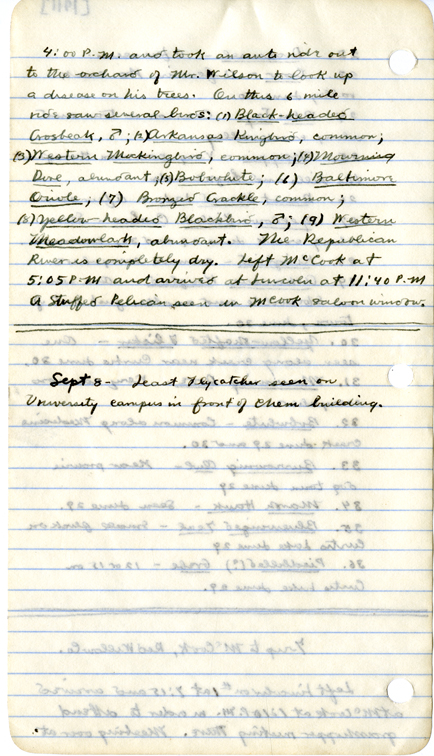 4:00 P.M. and took an auto ride out
to the orchard of Mr. Wilson to look up
a disease on his trees. On this 6 mile
ride saw several birds: (1) Black-headed
Grosbeak, ♂; (2) Arkansas Kingbird, common;
(3) Western Mockingbird, common; (4) Mourning
Dove, abundant; (5) Bobwhite; (6) Baltimore
Oriole, (7) Bronzed Grackle, common;
(8) Yellow-headed Blackbird, ♂; (9) Western
Meadowlark, abundant. The Republican
River is completely dry. Left McCook at
5:05 P.M and arrived at Lincoln at 11:40 P.M
A stuffed Pelican seen in McCook saloon window.
Sept 8- Least Flycatcher seen on
University campus in front of Chem building.